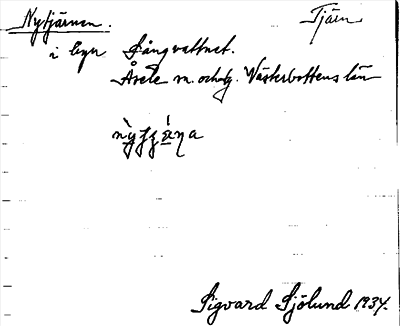 Nytjärnen. Tjärn
i byn Långvattnet.
Åsele sn. och tg. Västerbottens län
Sigvard Sjölund 1937.